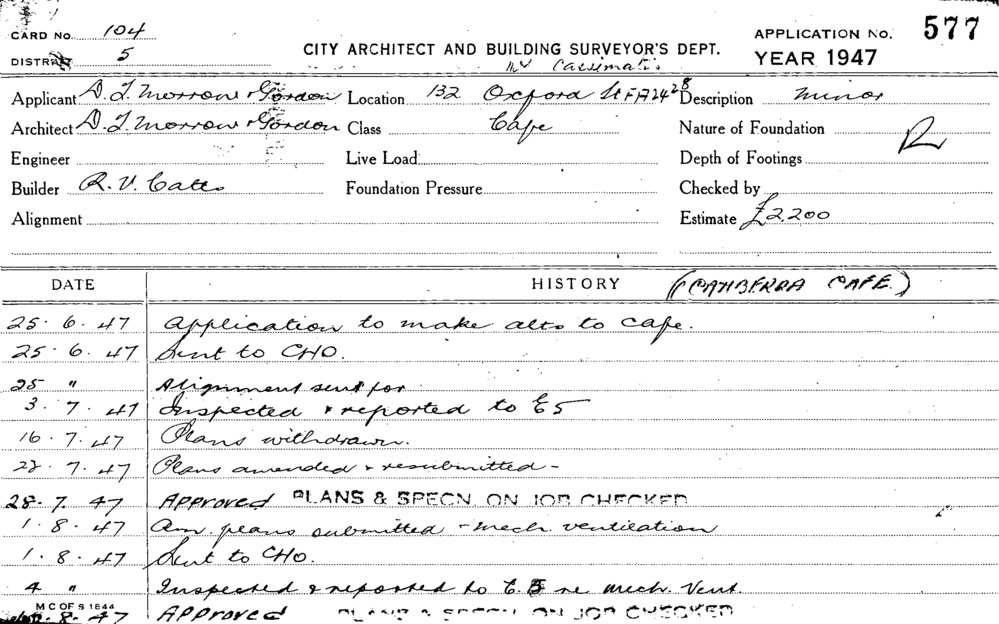 CARD NO. 104
DISTRICT 5
CITY ARCHITECT AND BUILDING SURVEYOR'S DEPT.
APPLICATION NO. 577
YEAR 1947
Mr Cassimatis
Applicant D. T. Morrow & Gordon Location 132 Oxford St FA2428 Description minor
Architect D. T. Morrow & Gordon Class Cafe Nature of Foundation R
Engineer Live Load Depth of Footings
Builder R. V. Cates Foundation Pressure Checked by
Alignment Estimate £2200
DATE HISTORY (CANBERRA CAFE.)
25. 6. 47 Application to make alts to cafe.
25. 6. 47 Sent to CHO.
25 " Alignment sent for
3. 7. 47 Inspected & reported to E5
16. 7. 47 Plans withdrawn.
7. 47 Plans amended & resubmitted -
28. 7. 47 Approved PLANS & SPECN. ON JOB CHECKED
1. 8. 47 Am. plans submitted - mech ventilation
1. 8. 47 Sent to CHO.
4 " Inspected & reported to E.5 re mech. Vent.
M C OF S 1844
8. 47 Approved PLANS & SPECN ON JOB CHECKED